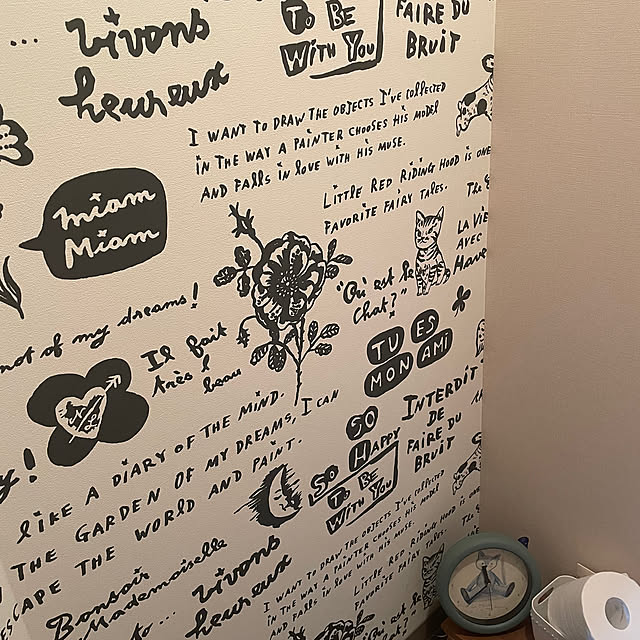 ... vivons
heureux
To Be
With You
FAIRE DU
BRUIT
I WANT TO DRAW THE OBJECTS I'VE COLLECTED
IN THE WAY A PAINTER CHOOSES HIS MODEL
AND FALLS IN LOVE WITH HIS MUSE.
LITTLE RED RIDING HOOD IS ONE
FAVORITE FAIRY TALES.
The
miam
Miam
LA VIE
AVEC
"Où est le
chat?"
not of my dreams!
Il fait
très
beau
TU ES
MON AMI
INTERDIT
DE
FAIRE DU
BRUIT
SO
HAPPY
SO
To Be
With You
LIKE A DIARY OF THE MIND.
THE GARDEN OF MY DREAMS, I CAN
ESCAPE THE WORLD AND PAINT.
y!
Bonsoir
Mademoiselle
to... vivons
heureux
I WANT TO DRAW THE OBJECTS I'VE COLLECTED
IN THE WAY A PAINTER CHOOSES HIS MODEL
AND FALLS IN LOVE WITH HIS MUSE.
LITTLE RED RIDING HOOD IS ONE
FAVORITE FAIRY TALES.
"Où est le
chat?"